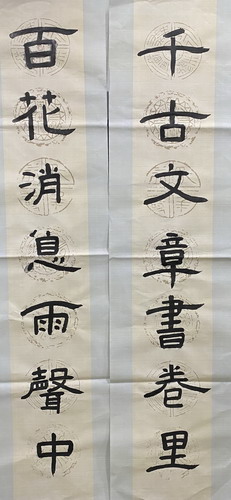 千古文章書卷里
百花消息雨聲中